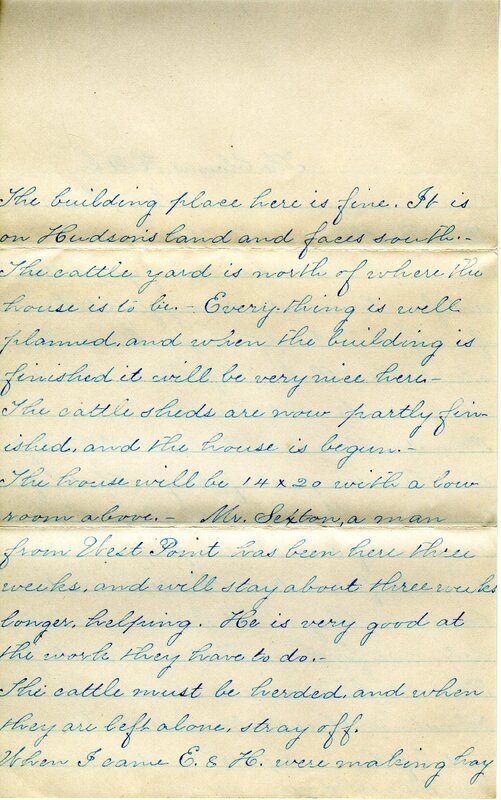 The building place here is fine. It is
on Hudson's land and faces south.-
The cattle yard is north of where the
house is to be.- Every thing is well
planned, and when the building is
finished it will be very nice here.-
The cattle sheds are now partly fin-
ished, and the house is begun.-
The house will be 14 x 20 with a low
room above.- Mr. Sexton, a man
from West Point has been here three
weeks, and will stay about three weeks
longer, helping. He is very good at
the work they have to do.-
The cattle must be herded, and when
they are left alone, stray off.
When I came E. & H. were making hay